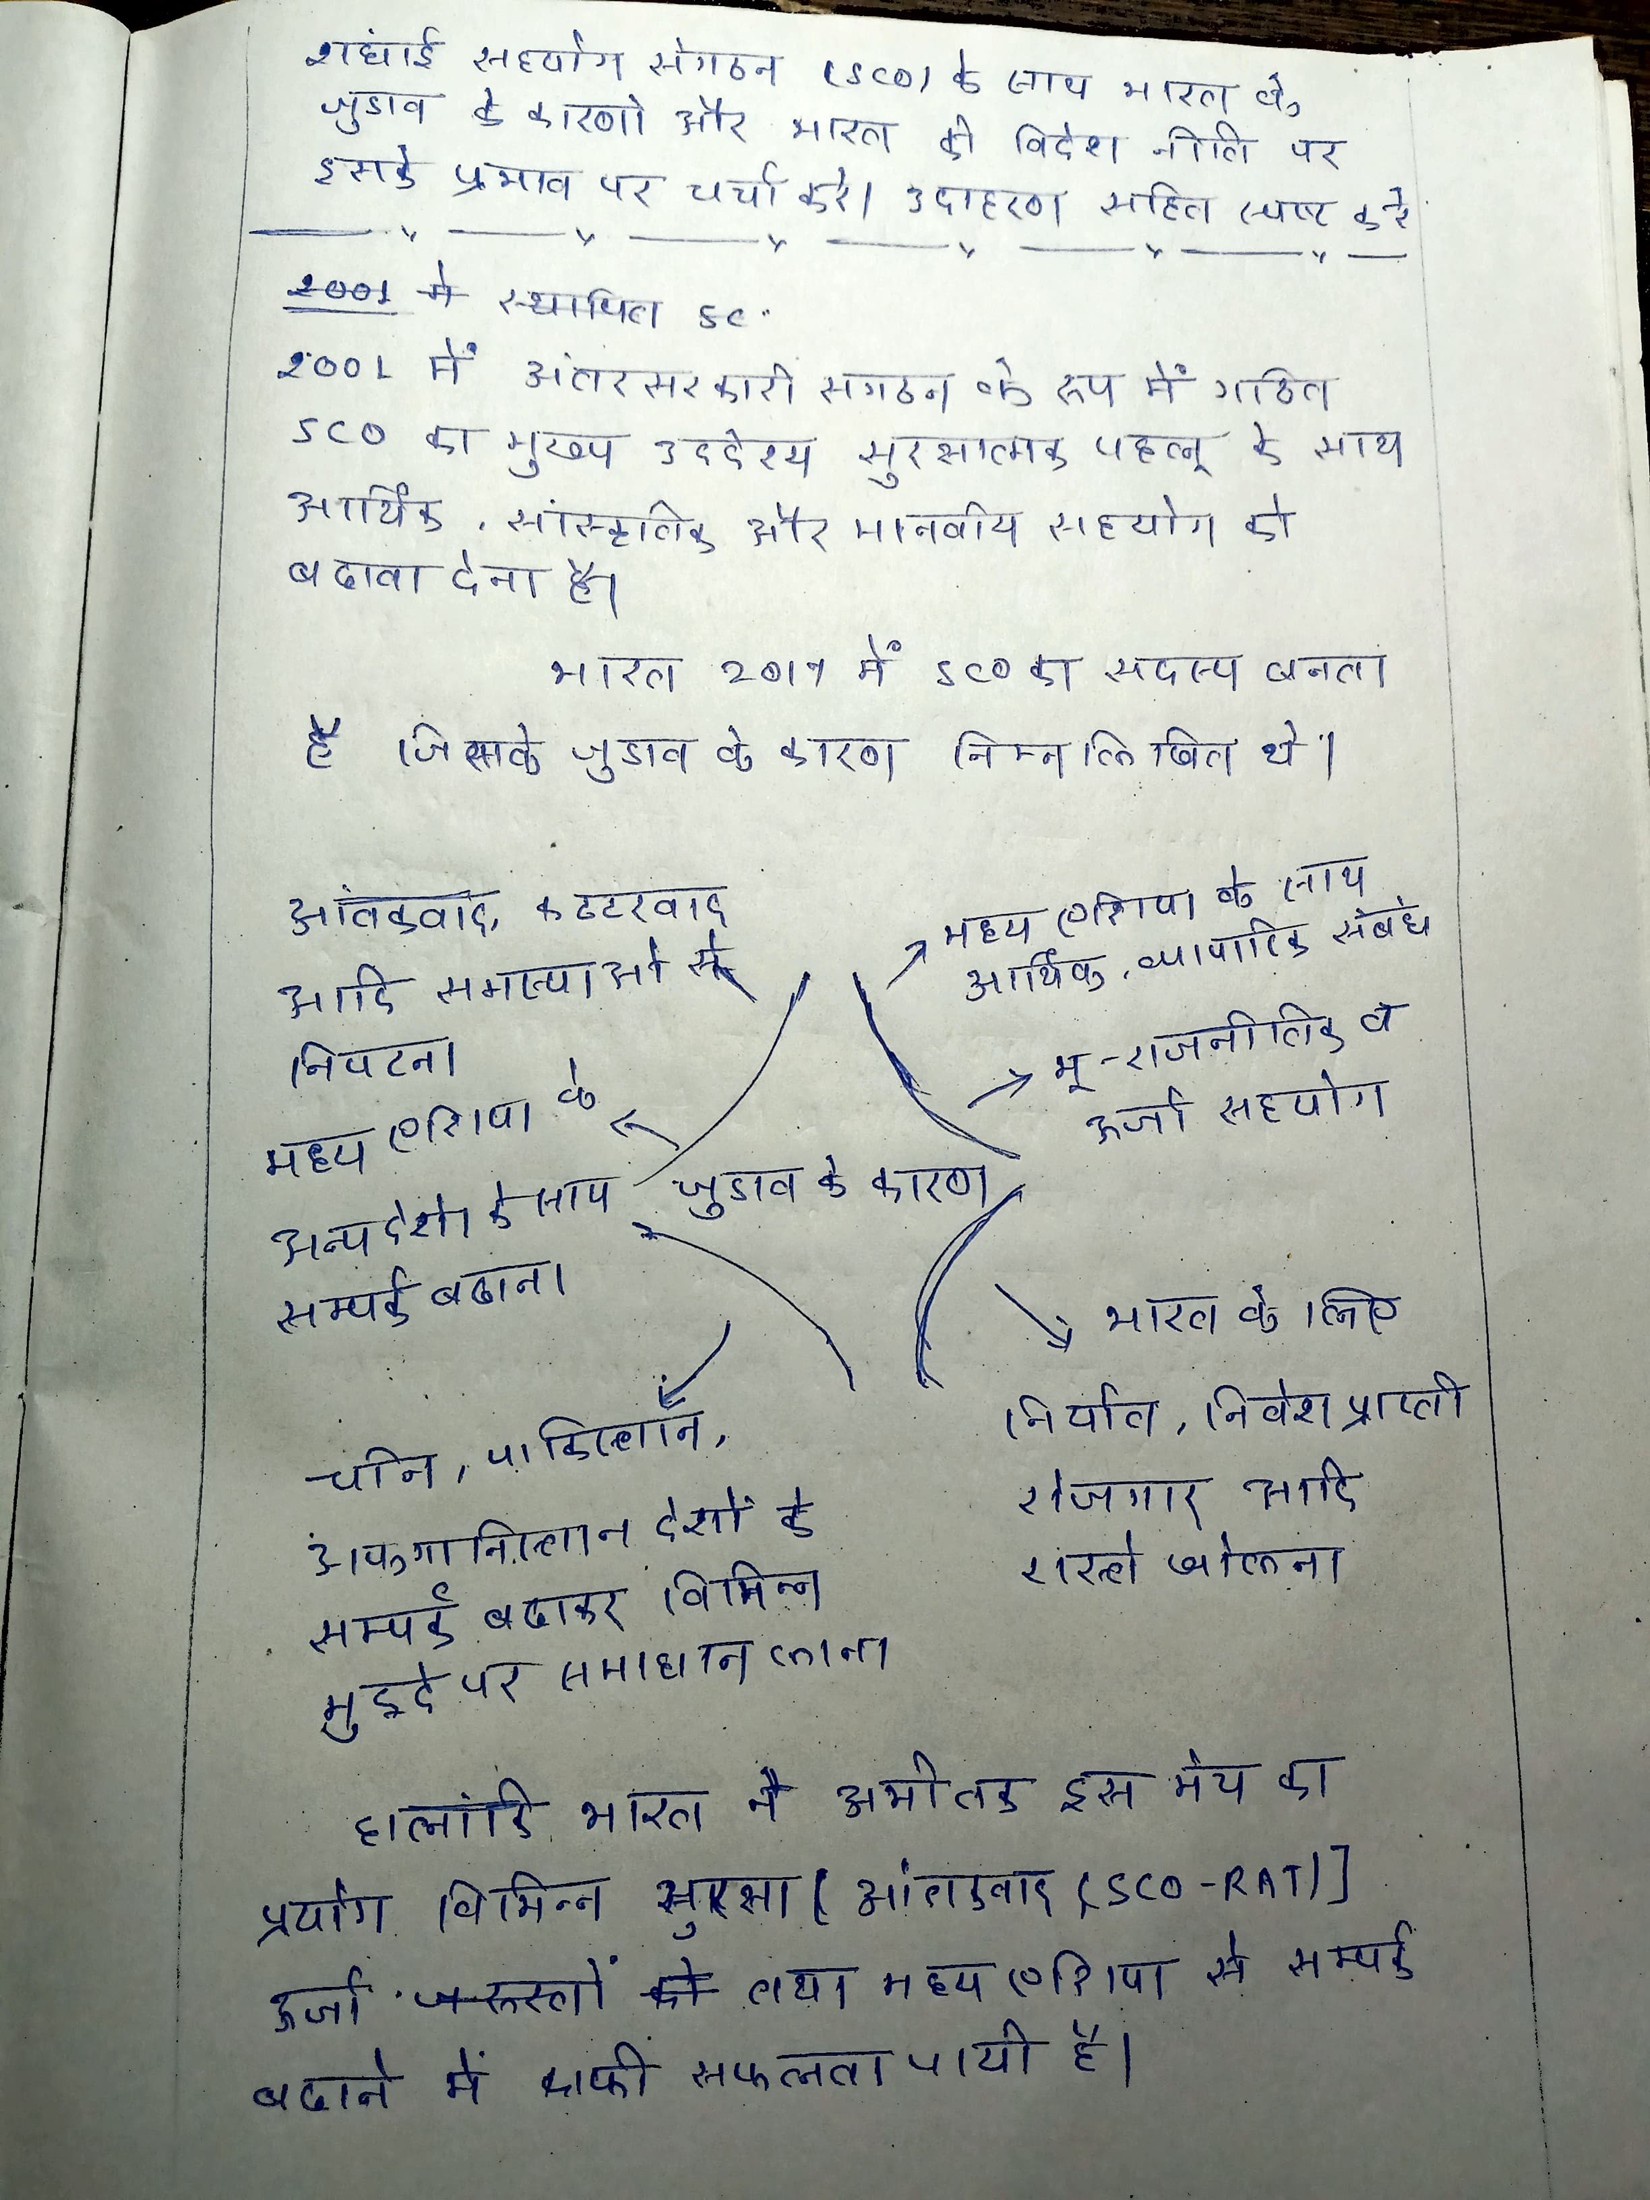 शघांई सहयोग संगठन (SCO) के साथ भारत के
जुडाव के कारणो और भारत की विदेश नीति पर
इसके प्रभाव पर चर्चा करे। उदाहरण सहित स्पष्ट करे
2001 मे स्थापित SC
2001 में अंतरसरकारी संगठन के रूप में गठित
SCO का मुख्य उददेश्य सुरक्षात्मक पहलू के साथ
आर्थिक, सांस्कृतिक और मानवीय सहयोग को
बढावा देना है।
भारत 2017 में SCO का सदस्य बनता
है जिसके जुडाव के कारण निम्नलिखित थे।
आंतकवाद, कटटरवाद
आदि समस्याओ से
निपटना
मध्य एशिया के साथ
आर्थिक, व्यापारिक संबंध
भू-राजनीतिक व
ऊर्जा सहयोग
मध्य एशिया के
अन्य देशो के साथ
सम्पर्क बढाना
जुडाव के कारण
भारत के लिए
निर्यात, निवेश प्राप्ती
रोजगार आदि
रास्ते खोलना
चीन, पाकिस्तान,
अफगानिस्तान देशों के
सम्पर्क बढाकर विभिन्न
मुद्दे पर समाधान लाना
हालांकि भारत ने अभीतक इस मंच का
प्रयोग विभिन्न सुरक्षा [आंतकवाद (SCO-RAT)]
ऊर्जा जरूरतों को तथा मध्य एशिया से सम्पर्क
बढाने में काफी सफलता पायी है।